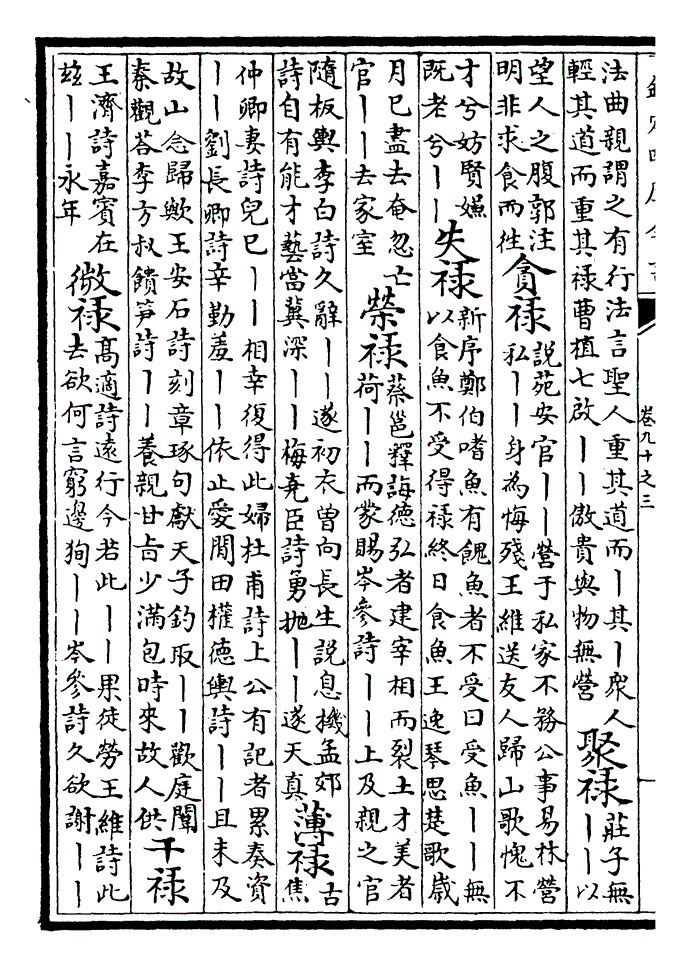 欽定四庫全書
卷九十之三
法曲親謂之有行法言聖人重其道而丨其丨衆人
輕其道而重其禄曹植七啟丨丨傲貴與物無營
聚禄
莊子無
丨丨以
望人之腹郭注
明非求食而徃
貪禄
説苑安官丨丨營于私家不務公事易林營
私丨丨身為悔殘王維送友人歸山歌愧不
才兮妨賢嫌
既老兮丨丨
失禄
新序鄭伯嗜魚有餽魚者不受曰受魚丨丨無
以食魚不受得禄終日食魚王逸琴思楚歌歳
月已盡去奄忽亡
官丨丨去家室
榮禄
蔡邕釋誨德弘者建宰相而裂土才美者
荷丨丨而蒙賜岑參詩丨丨上及親之官
隨板輿李白詩久辭丨丨遂初衣曾向長生説息機孟郊
詩自有能才藝當冀深丨丨梅堯臣詩勇抛丨丨遂天真
薄禄
古
焦
仲卿妻詩兒已丨丨相幸復得此婦杜甫詩上公有記者累奏資
丨丨劉長卿詩辛勤羞丨丨依止愛閒田權德輿詩丨丨且未及
故山念歸歟王安石詩刻章琢句獻天子釣取丨丨歡庭闈
秦觀荅李方叔饋筍詩丨丨養親甘㫖少滿包時來故人供
干禄
王濟詩嘉賓在
兹丨丨永年
微禄
髙適詩遠行今若此丨丨果徒勞王維詩此
去欲何言窮邊狥丨丨岑參詩久欲謝丨丨